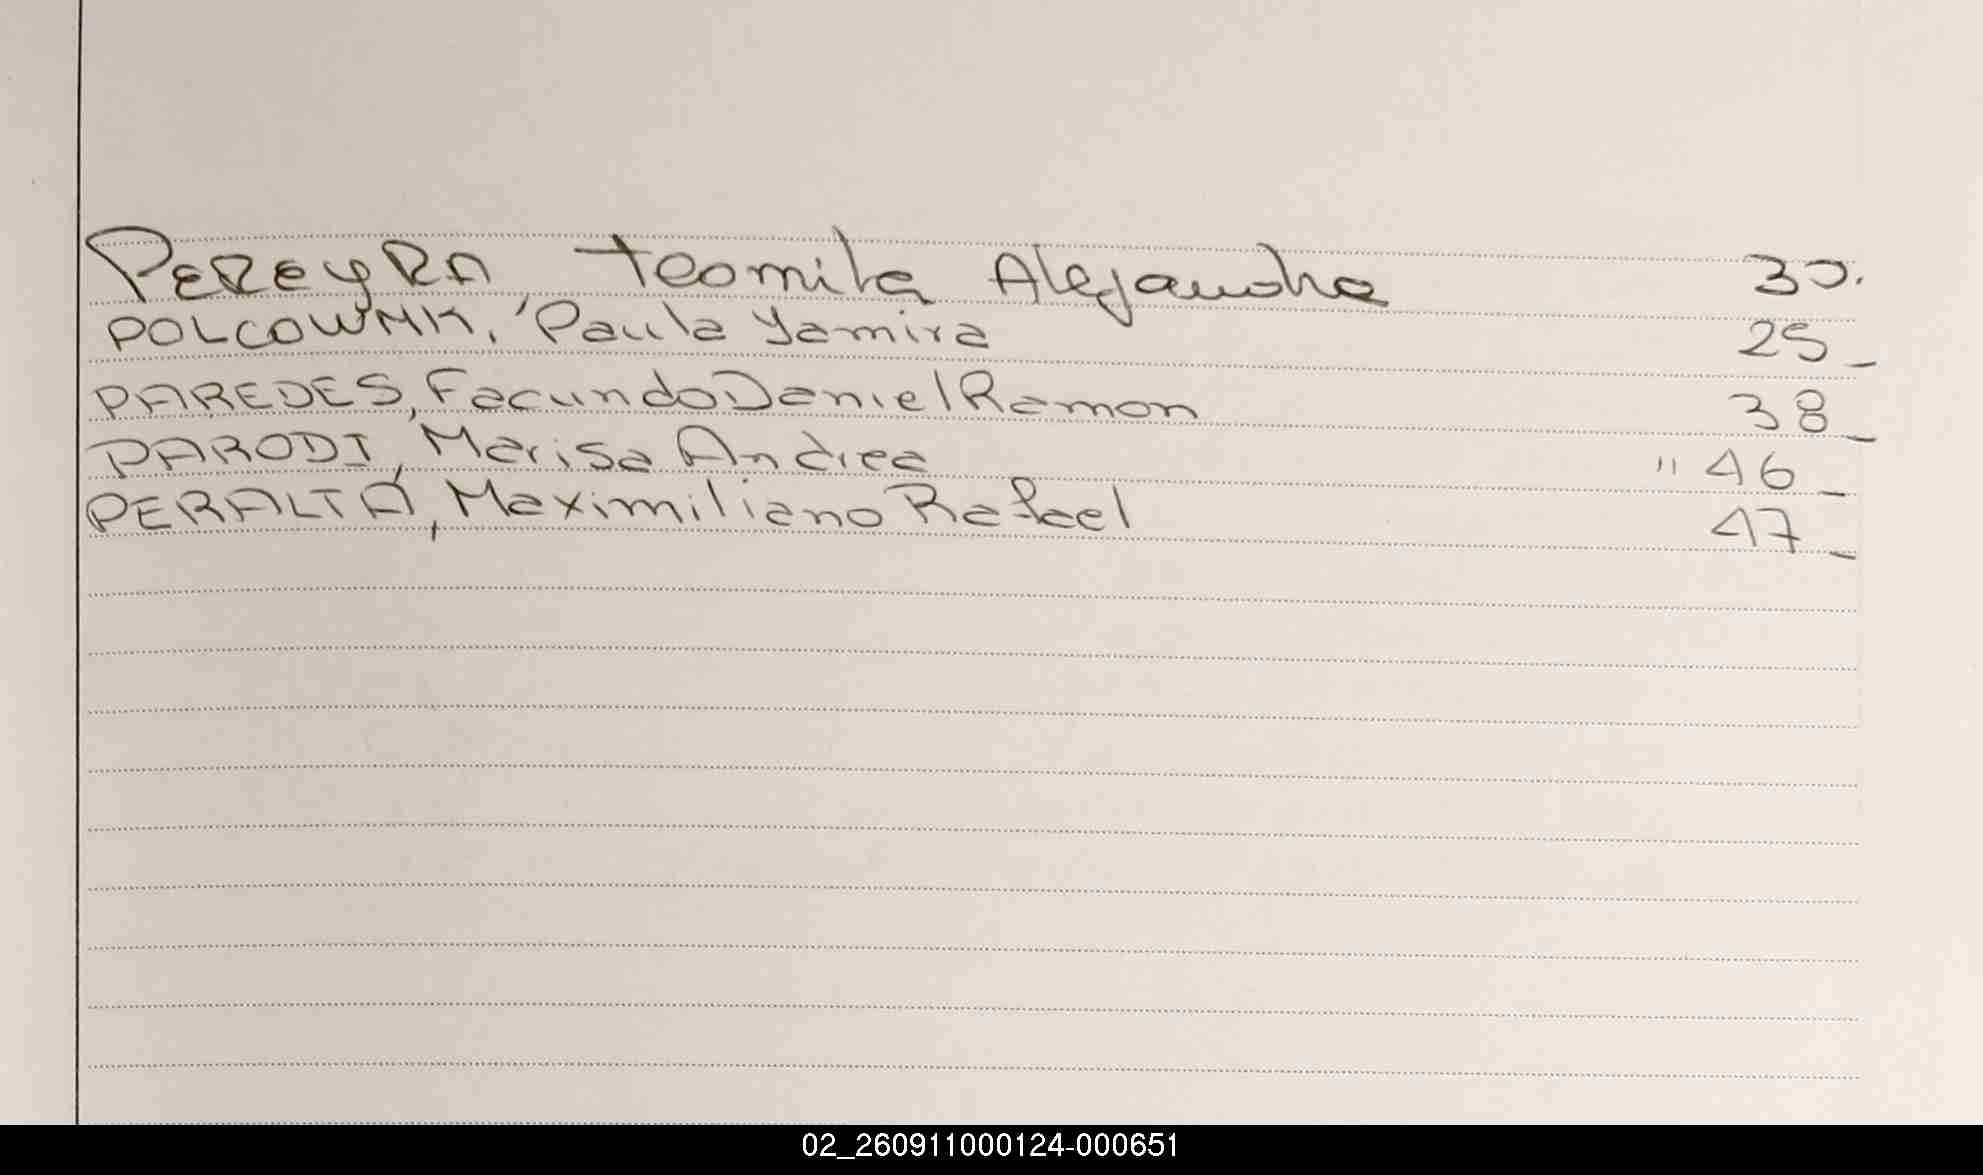 PEREYRA Teomila Alejandra 30.
POLCOWMK, Paula Yamira 25_
PAREDES, Facundo Daniel Ramon 38_
PARODI, Marisa Andrea " 46_
PERALTA, Maximiliano Rafael 47_
02_260911000124-000651